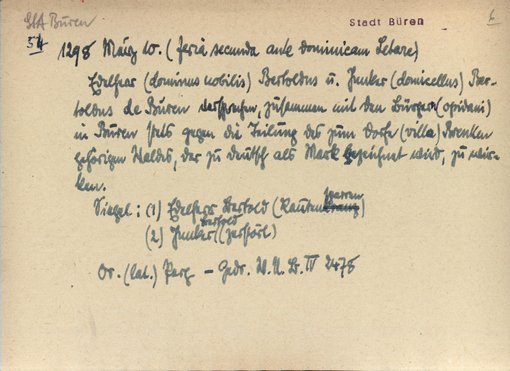 StA Büren
Stadt Büren
6
54
1298 März 10. (feria secunda ante dominicam Letare)
Edelherr (dominus nobilis) Bertoldus u. Junker (domicellus) Ber-
toldus de Büren versprechen, zusammen mit den Bürgern (opidani)
in Büren stets gegen die Teilung des zum Dorfe (villa) Brenken
gehörigen Waldes, der zu deutsch als Mark bezeichnet wird, zu wir-
ken.
Siegel: (1) Edelherr Bertold (Rautensparren)
(2) Junker Bertold (zerstört)
Or. (lat.) Perg – Gedr. W. U. B. IV 2478